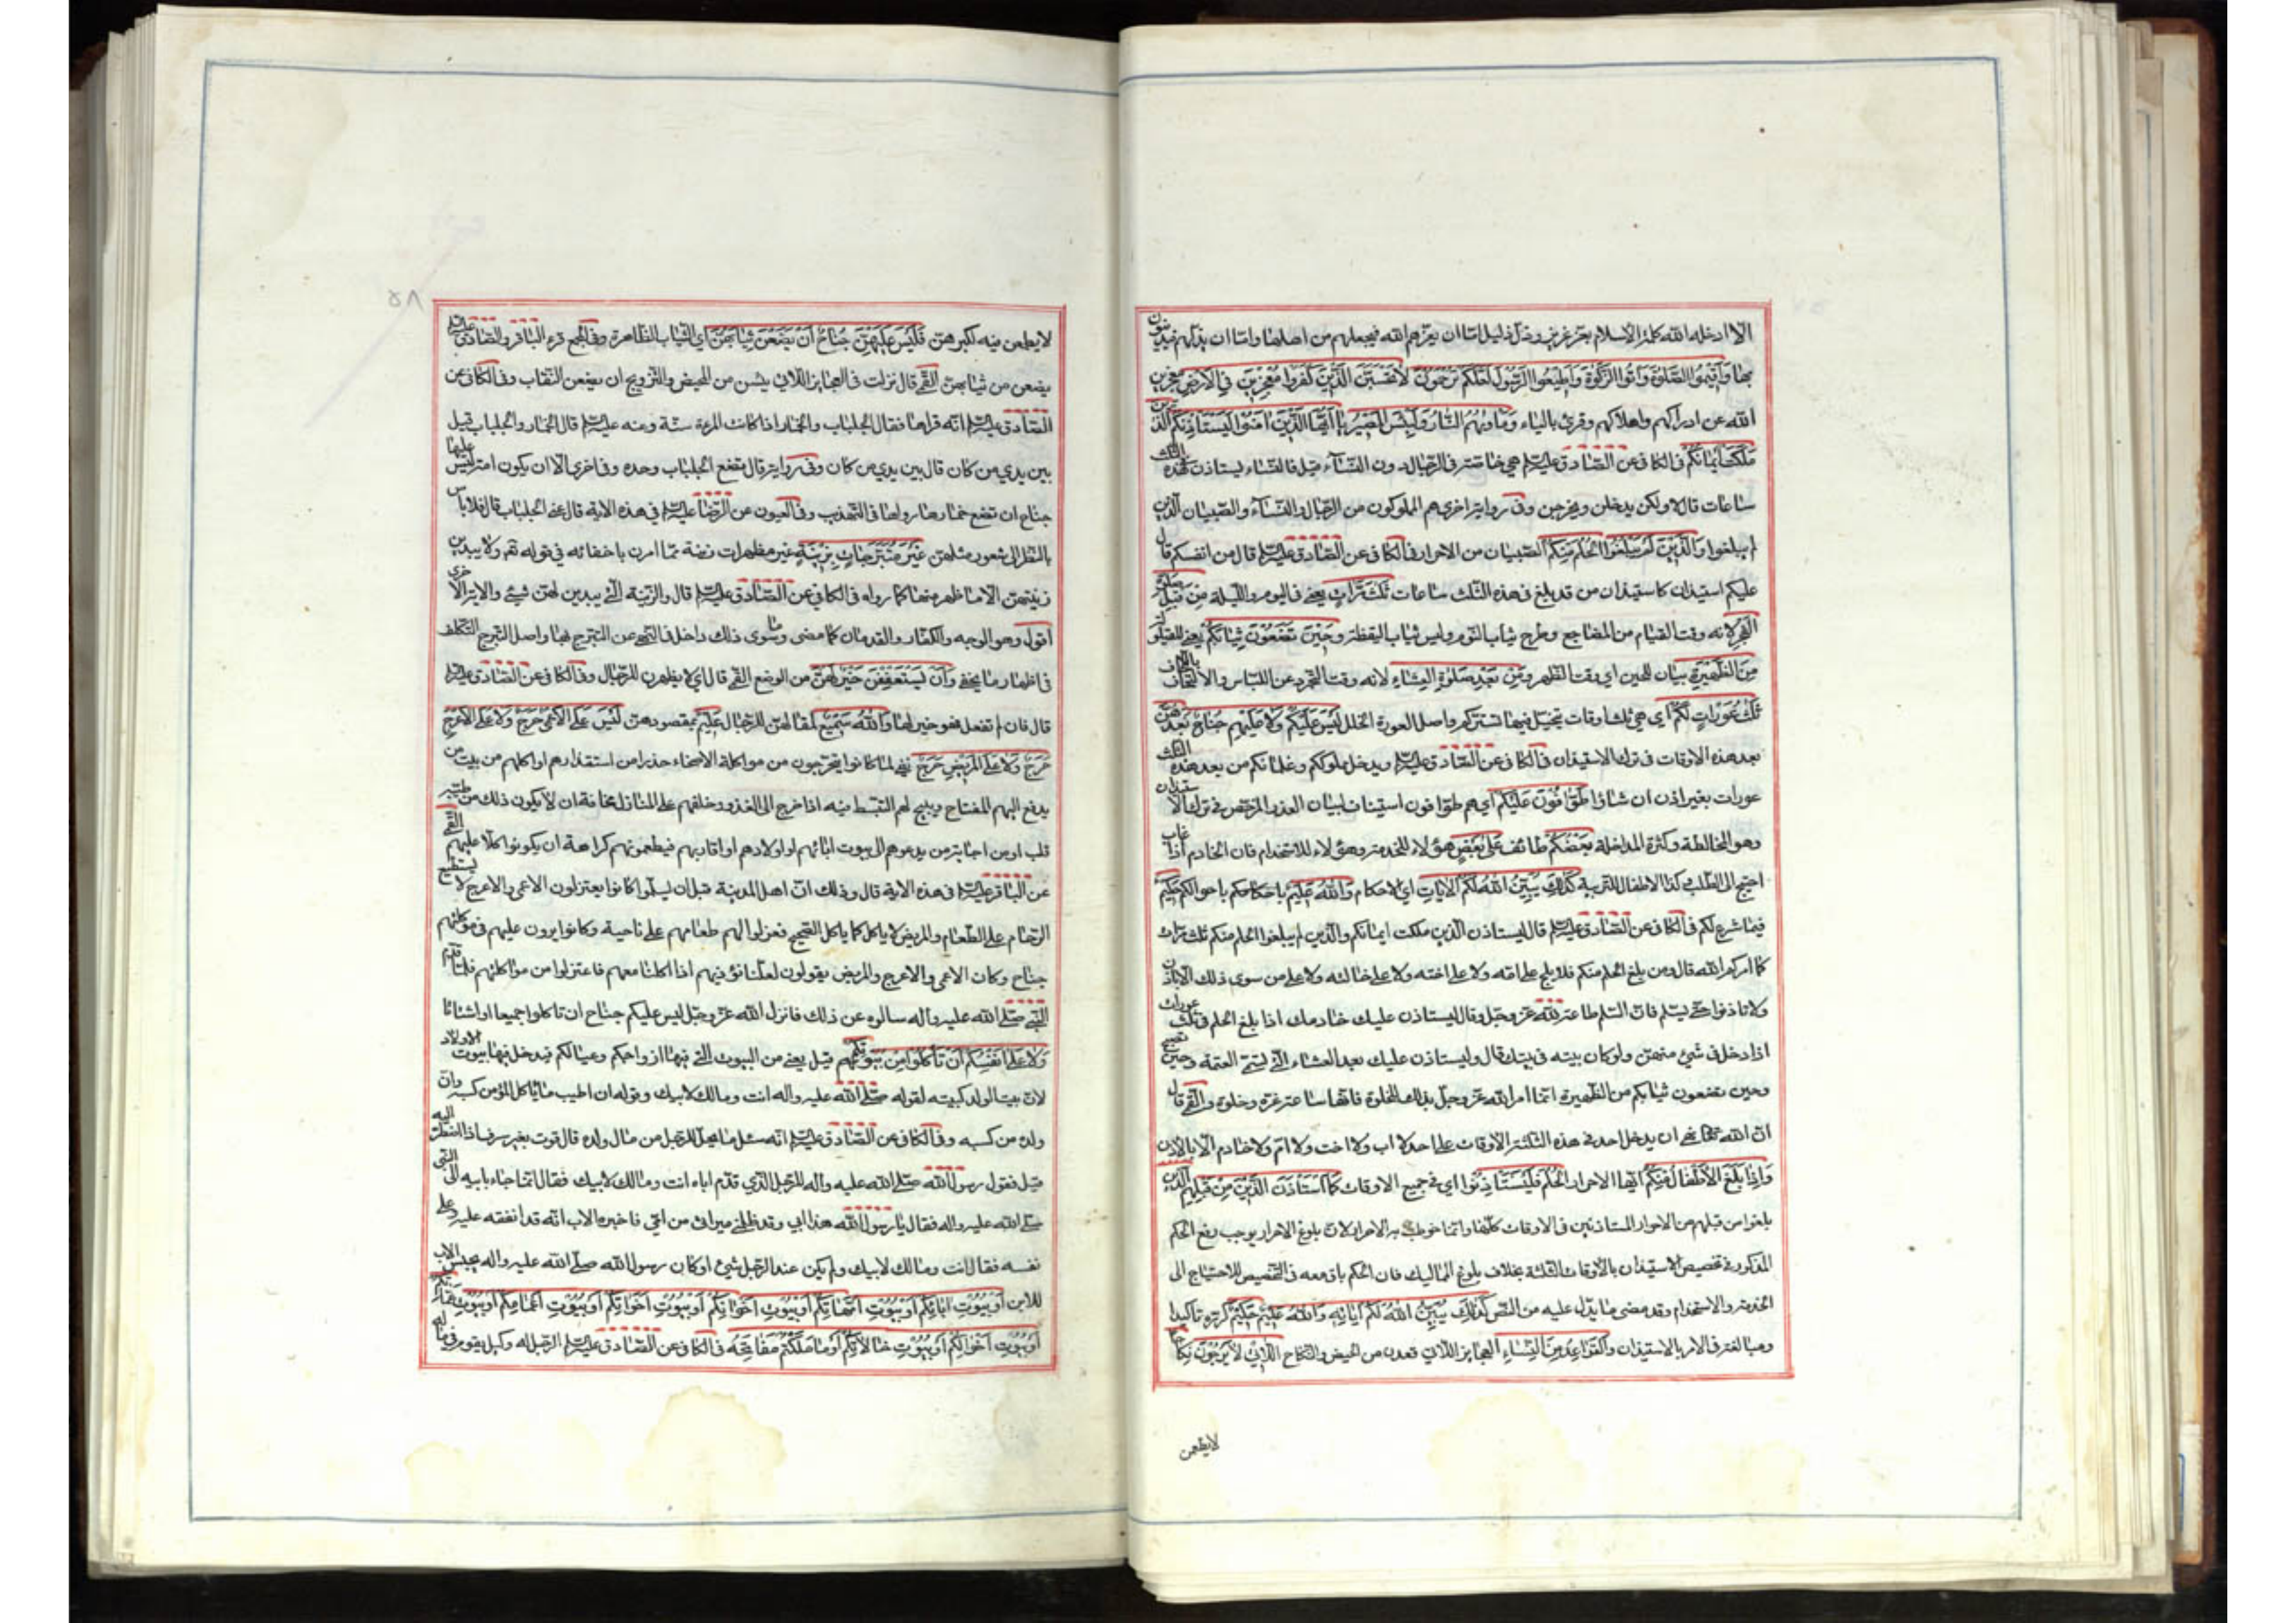 الا ادخله الله كلمة الاسلام بعز عزيز وذل ذليل اما ان يعزهم الله فيجعلهم من اهلها واما ان يذلهم فيدينون
بها وَاَقيمُوا الصَّلوةَ وَاتُوا الزَّكوةَ وَاَطيعُوا الرَّسُولَ لَعَلَّكُم تُرحَمُونَ لا تَحسَبَنَّ الَّذينَ كَفَرُوا مُعجِزينَ فِي الاَرضِ معجزين
الله عن ادراكهم واهلاكهم وقرئ بالياء وَمَأويهُمُ النّارُ وَلَبِئسَ المَصيرُ يا اَيُّهَا الَّذينَ امَنُوا لِيَستَأذِنكُم الَّذينَ
مَلَكَت اَيمانُكُم في الكافي عن الصادق عليه السلم هي خاصة في الرجال دون النساء قيل فالنساء يستاذن في هذه الثلث
ساعات قال لا ولكن يدخلن ويخرجن وفي رواية اخرى هم المملوكون من الرجال والنساء والصبيان الذين
لم يبلغوا وَالَّذينَ لَم يَبلُغُوا الحُلُمَ مِنكُم الصبيان من الاحرار في الكافي عن الصادق عليه السلم قال من انفسكم قال
عليكم استيذان كاستيذان من قد بلغ في هذه الثلث ساعات ثَلثَ مَرّاتٍ يعني في اليوم والليلة مِن قَبلِ صَلوةِ
الفَجرِ لانه وقت القيام من المضاجع وطرح ثياب النوم ولبس ثياب اليقظة وَحينَ تَضَعُونَ ثِيابَكُم يعني للقيلولة
مِنَ الظَّهيرَةِ بيان للحين اي وقت الظهر وَمِن بَعدِ صَلوةِ العِشاءِ لانه وقت التجرد عن اللباس والالتحاف باللحاف
ثَلثُ عَوراتٍ لَكُم اي هي ثلث اوقات يختل فيها تستركم واصل العورة الخلل لَيسَ عَلَيكُم وَلا عَلَيهِم جُناحٌ بَعدَهُنَّ
بعد هذه الاوقات في ترك الاستيذان في الكافي عن الصادق عليه السلم ويدخل مملوككم وغلمانكم من بعد هذه الثلث
عورات بغير اذن ان شاؤا طَوّافُونَ عَلَيكُم اي هم طوافون استيناف لبيان العذر المرخص في ترك الاستيذان
وهو المخالطة وكثرة المداخلة بَعضُكُم طائف عَلى بَعضٍ هؤلاء للخدمة وهؤلاء للاستخدام فان الخادم اذا غاب
احتيج الى الطلب وكذا الاطفال للتربية كَذلِكَ يُبَيِّنُ اللهُ لَكُمُ الاياتِ اي الاحكام وَاللهُ عَليمٌ باحكامكم باحوالكم حَكيمٌ
فيما شرع لكم في الكافي عن الصادق عليه السلم قال ليستاذن الذين ملكت ايمانكم والذين لم يبلغوا الحلم منكم ثلث مرات
كما امركم الله قال ومن بلغ الحلم منكم فلا يلج على امه ولا على اخته ولا على خالته ولا على من سوى ذلك الا باذن
ولا تاذنوا حتى يسلم فان السلم طاعة لله عز وجل وقال ليستاذن عليك خادمك اذا بلغ الحلم في ثلث عورات
اذا دخل في شئ منهن ولو كان بيته في بيتك قال وليستاذن عليك بعد العشاء التي تسمى العتمة وحين تصبح
وحين تضعون ثيابكم من الظهيرة انما امر الله عز وجل بذلك للخلوة فانها ساعة غرة وخلوة والقمي قال
ان الله تعالى نهى ان يدخل احد في هذه الثلثة الاوقات على احد لا اب ولا اخت ولا ام ولا خادم الا باذن
وَاِذا بَلَغَ الاَطفالُ مِنكُم ايها الاحرار الحُلُمَ فَليَستَأذِنُوا اي في جميع الاوقات كَمَا استَأذَنَ الَّذينَ مِن قَبلِهِم الذين
بلغوا من قبلهم من الاحرار المستاذنين في الاوقات كلها وانما خوطب به الاحرار لان بلوغ الاحرار يوجب رفع الحكم
المذكور في تخصيص الاستيذان بالاوقات الثلثة بخلاف بلوغ المماليك فان الحكم باق معه في التخصيص للاحتياج الى
الخدمة والاستخدام وقد مضى ما يدل عليه من النص كَذلِكَ يُبَيِّنُ اللهُ لَكُم اياتِه وَاللهُ عَليمٌ حَكيمٌ كرره تاكيدا
ومبالغة في الامر بالاستيذان وَالقَواعِدُ مِنَ النِّساءِ العجايز اللاتي قعدن من الحيض والنكاح اللاّتي لا يَرجُونَ نِكاحاً
لا يطمعن
٥٨
لا يطمعن فيه لكبرهن فَلَيسَ عَلَيهِنَّ جُناحٌ اَن يَضَعنَ ثِيابَهُنَّ اي الثياب الظاهرة وفي المجمع قرء الباقر والصادق عليهما السلم
يضعن من ثيابهن القمي قال نزلت في العجايز اللاتي يئسن من المحيض والتزويج ان يضعن النقاب وفي الكافي عن
الصادق عليه السلم انه قراها فقال الجلباب والخمار اذا كانت المرءة مسنة وعنه عليه السلم قال الخمار والجلباب قيل
بين يدي من كان قال بين يدي من كان وفي رواية قال تضع الجلباب وحده وفي اخرى الا ان يكون امة ليس عليها
جناح ان تضع خمارها رواها في التهذيب وفي العيون عن الرضا عليه السلم في هذه الاية قال غير الجلباب قال فلا باس
بالنظر الى شعور مثلهن غَيرَ مُتَبَرِّجاتٍ بِزينَةٍ غير مظهرات زينة مما امرن باخفائه في قوله تعم ولا يبدين
زينتهن الا ما ظهر منها كما رواه في الكافي عن الصادق عليه السلم قال والزينة التي يبدين لهن شئ والاية الاخرى
اقول وهو الوجه والكفان والقدمان كما مضى وما سوى ذلك داخل في النهي عن التبرج بها واصل التبرج التكلف
في اظهار ما يخفى وَاَن يَستَعفِفنَ خَيرٌ لَهُنَّ من الوضع القمي قال اي لا يظهرن للرجال وفي الكافي عن الصادق عليه السلم
قال فان لم تفعل فهو خير لها وَاللهُ سَميعٌ لمقالهن للرجال عَليمٌ بمقصودهن لَيسَ عَلَى الاَعمى حَرَجٌ وَلا عَلَى الاَعرَجِ
حَرَجٌ وَلا عَلَى المَريضِ حَرَجٌ نفي لما كانوا يتحرجون من مواكلة الاصحاء حذرا من استقذارهم او اكلهم من بيت من
يدفع اليهم المفتاح ويبيح لهم التبسط فيه اذا خرج الى الغزو وخلفهم على المنازل مخافة ان لا يكون ذلك من طيب
قلب او من اجابة من يدعوهم الى بيوت ابائهم او اولادهم او اقاربهم فيطعمونهم كراهة ان يكونوا كلا عليهم القمي
عن الباقر عليه السلم في هذه الاية قال وذلك ان اهل المدينة قبل ان يسلموا كانوا يعتزلون الاعمى والاعرج لا يستطيع
الزحام على الطعام والمريض لا ياكل كما ياكل الصحيح فعزلوا لهم طعامهم على ناحية وكانوا يرون عليهم في مؤاكلتهم
جناح وكان الاعمى والاعرج والمريض يقولون لعلنا نؤذيهم اذا اكلنا معهم فاعتزلوا من مؤاكلتهم فلما قدم
النبي صلى الله عليه واله سالوه عن ذلك فانزل الله عز وجل ليس عليكم جناح ان تاكلوا جميعا او اشتاتا
وَلا عَلى اَنفُسِكُم اَن تَأكُلُوا مِن بُيُوتِكُم قيل يعني من البيوت التي فيها ازواجكم وعيالكم فيدخل فيها بيوت الاولاد
لان بيت الولد كبيته لقوله صلى الله عليه واله انت ومالك لابيك وقوله ان اطيب ما ياكل المؤمن كسبه وان
ولده من كسبه وفي الكافي عن الصادق عليه السلم انه سئل ما يحل للرجل من مال ولده قال قوت بغير سرف اذا اضطر اليه
قيل فقول رسول الله صلى الله عليه واله للرجل الذي قدم اباه انت ومالك لابيك فقال انما جاء بابيه الى النبي
صلى الله عليه واله فقال يا رسول الله هذا ابي وقد ظلمني ميراثي من امي فاخبره الاب انه قد انفقه عليه وعلى
نفسه فقال انت ومالك لابيك ولم يكن عند الرجل شئ او كان رسول الله صلى الله عليه واله يحبس الاب
للابن اَو بُيُوتِ ابائِكُم اَو بُيُوتِ اُمَّهاتِكُم اَو بُيُوتِ اِخوانِكُم اَو بُيُوتِ اَخَواتِكُم اَو بُيُوتِ اَعمامِكُم اَو بُيُوتِ عَمّاتِكُم
اَو بُيُوتِ اَخوالِكُم اَو بُيُوتِ خالاتِكُم اَو ما مَلَكتُم مَفاتِحَهُ في الكافي عن الصادق عليه السلم الرجل له وكيل يقوم في ماله